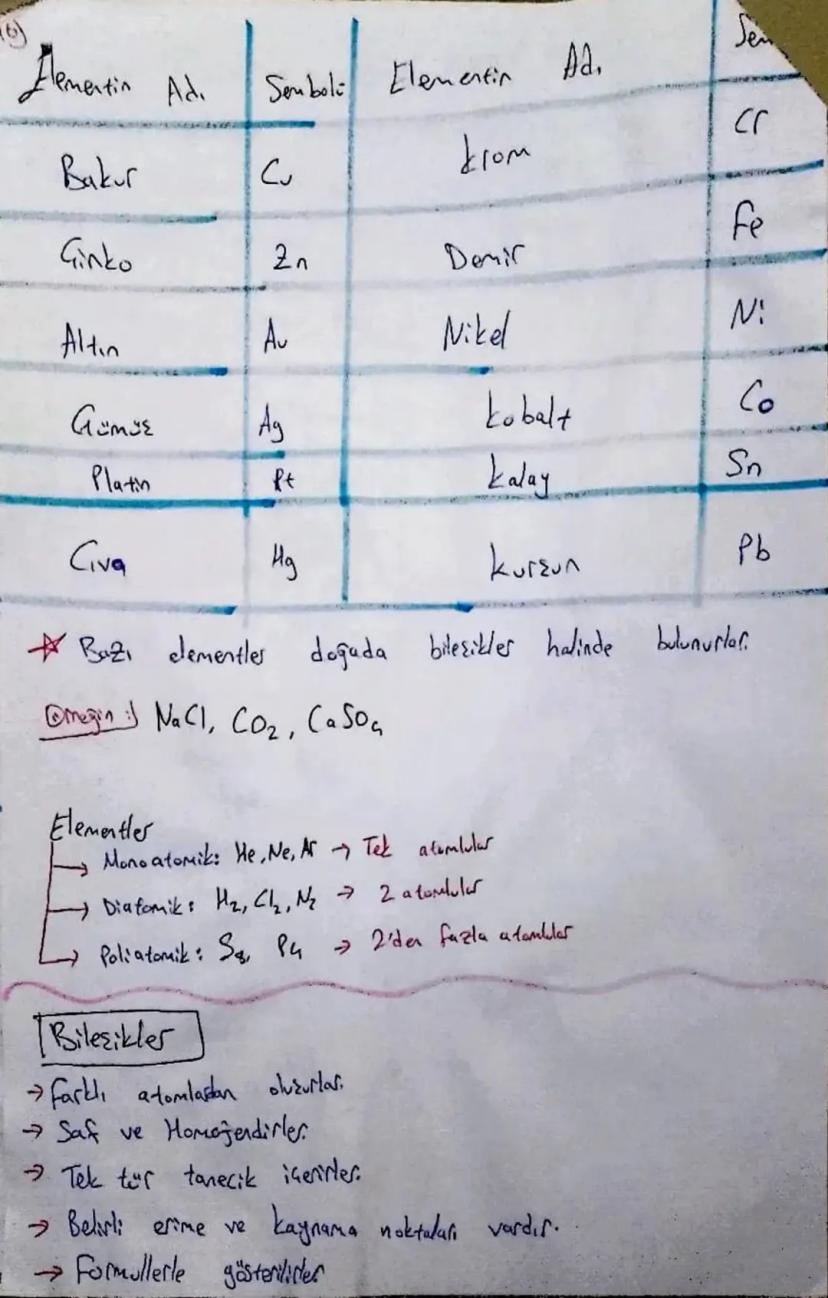 6)
Elementin Adı Sembolü Elementin Adı Sem
Bakır Cu Krom Cr
Çinko Zn Demir Fe
Altın Au Nikel Ni
Gümüş Ag Kobalt Co
Platin Pt Kalay Sn
Cıva Hg Kurşun Pb
☆ Bazı elementler doğada bileşikler halinde bulunurlar.
Örneğin :) NaCl, CO₂, CaSO₄
Elementler
→ Monoatomik: He, Ne, Ar → Tek atomlular
→ Diatomik: H₂, Cl₂, N₂ → 2 atomlular
→ Poliatomik: S₈, P₄ → 2'den fazla atomlular
Bileşikler
→ Farklı atomlardan oluşurlar.
→ Saf ve Homojendirler.
→ Tek tür tanecik içerirler.
→ Belirli erime ve kaynama noktaları vardır.
→ Formüllerle gösterilirler